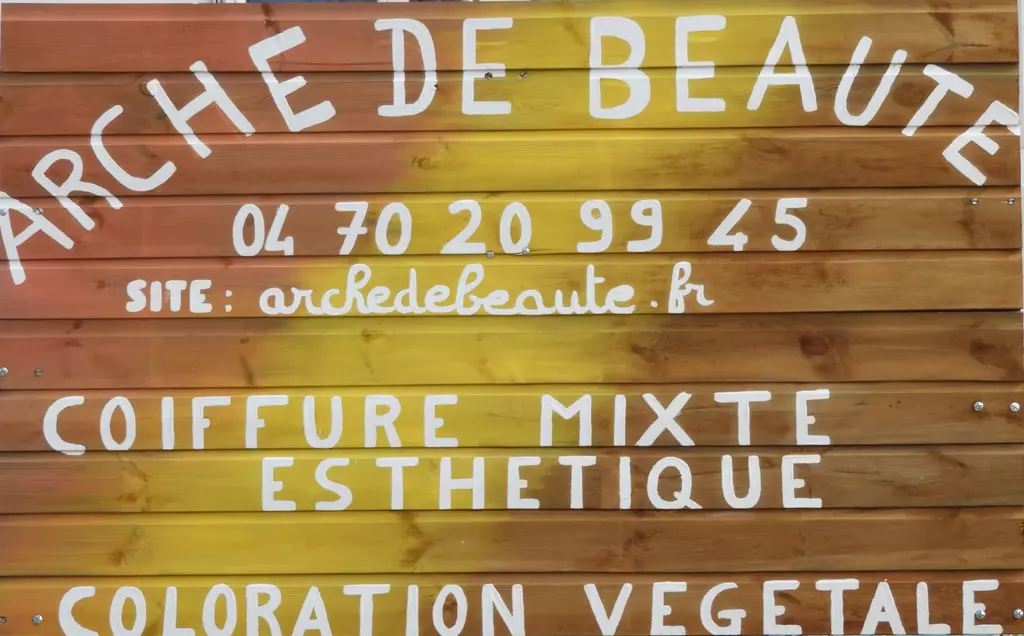 ARCHE DE BEAUTE
04 70 20 99 45
SITE: archedebeaute.fr
COIFFURE MIXTE
ESTHETIQUE
COLORATION VEGETALE